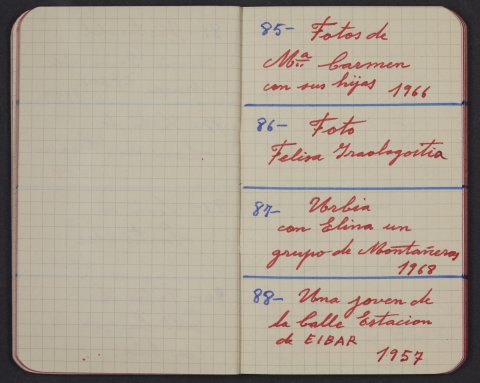 85- Fotos de
Mª Carmen
con sus hijas 1966
86- Foto
Felisa Iraolagoitia
87- Urbia
con Elina un
grupo de Montañeros
1968
88- Una joven de
la Calle Estacion
de EIBAR
1957